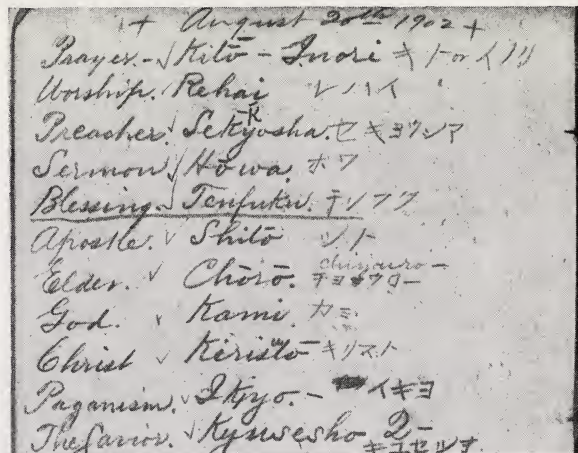 + August 20th 1902 +
Prayer - ✓ Kitō - Inori キトー or イノリ
Worship. Rehai レハイ
Preacher ✓ Sekyosha. セキヨウシア
Sermon ✓ Hōwa. ホワ
Blessing ✓ Tenfuku. テンフク
Apostle. ✓ Shitō シト
Elder. ✓ Chōrō. chiyauro- チヨウロー
God. ✓ Kami カミ
Christ ✓ Keristō キリスト
Paganism. ✓ Ikyo. - イキヨ
The Savior. ✓ Kyusesho 2-